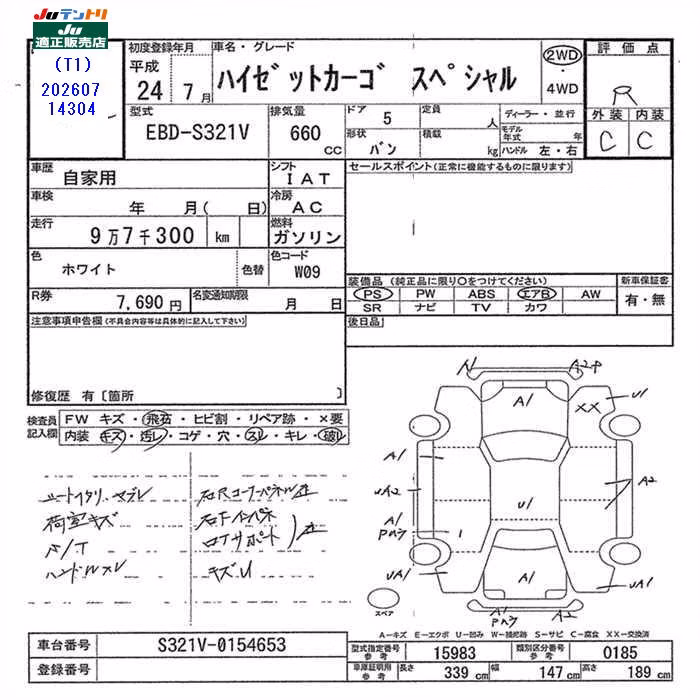 JUテントリ
Ju
適正販売店
(T1)
202607
14304
初度登録年月
平成
24 7月
車名・グレード
ハイゼットカーゴ スペシャル
2WD
・
4WD
評価点
R
外装 内装
C C
型式
EBD-S321V
排気量
660 CC
ドア 5
形状 バン
定員 人
積載 kg
ディーラー・並行
モデル年式 年
ハンドル 左・右
車歴 自家用
シフト IAT
車検 年 月( 日)
冷房 AC
走行 9万7千300 km
燃料 ガソリン
色 ホワイト 色替
色コード W09
R券 7,690円
名変通知期限 月 日
セールスポイント(正常に機能するものに限ります)
装備品(純正品に限り○をつけてください)
PS PW ABS エアB AW
SR ナビ TV カワ
新車保証書
有・無
後日品
注意事項申告欄(不具合内容等は具体的に記入して下さい)
修復歴 有〔箇所 〕
検査員記入欄
FW キズ・飛石・ヒビ割・リペア跡・×要
内装 キズ・汚レ・コゲ・穴・スレ・キレ・破レ
荷室キズ
F/T
ハンドルスレ
キズU
A1
A1
A2
XX
U1
A1
UA2
A1
U1
A2
UA1
A1
UA1
A2
スペア
A-キズ E-エクボ U-凹み W-補修跡 S-サビ C-腐食 XX-交換済
車台番号 S321V-0154653
登録番号
型式指定番号 参考 15983
類別区分番号 参考 0185
車庫証明用 参考 長さ 339 cm 幅 147 cm 高さ 189 cm